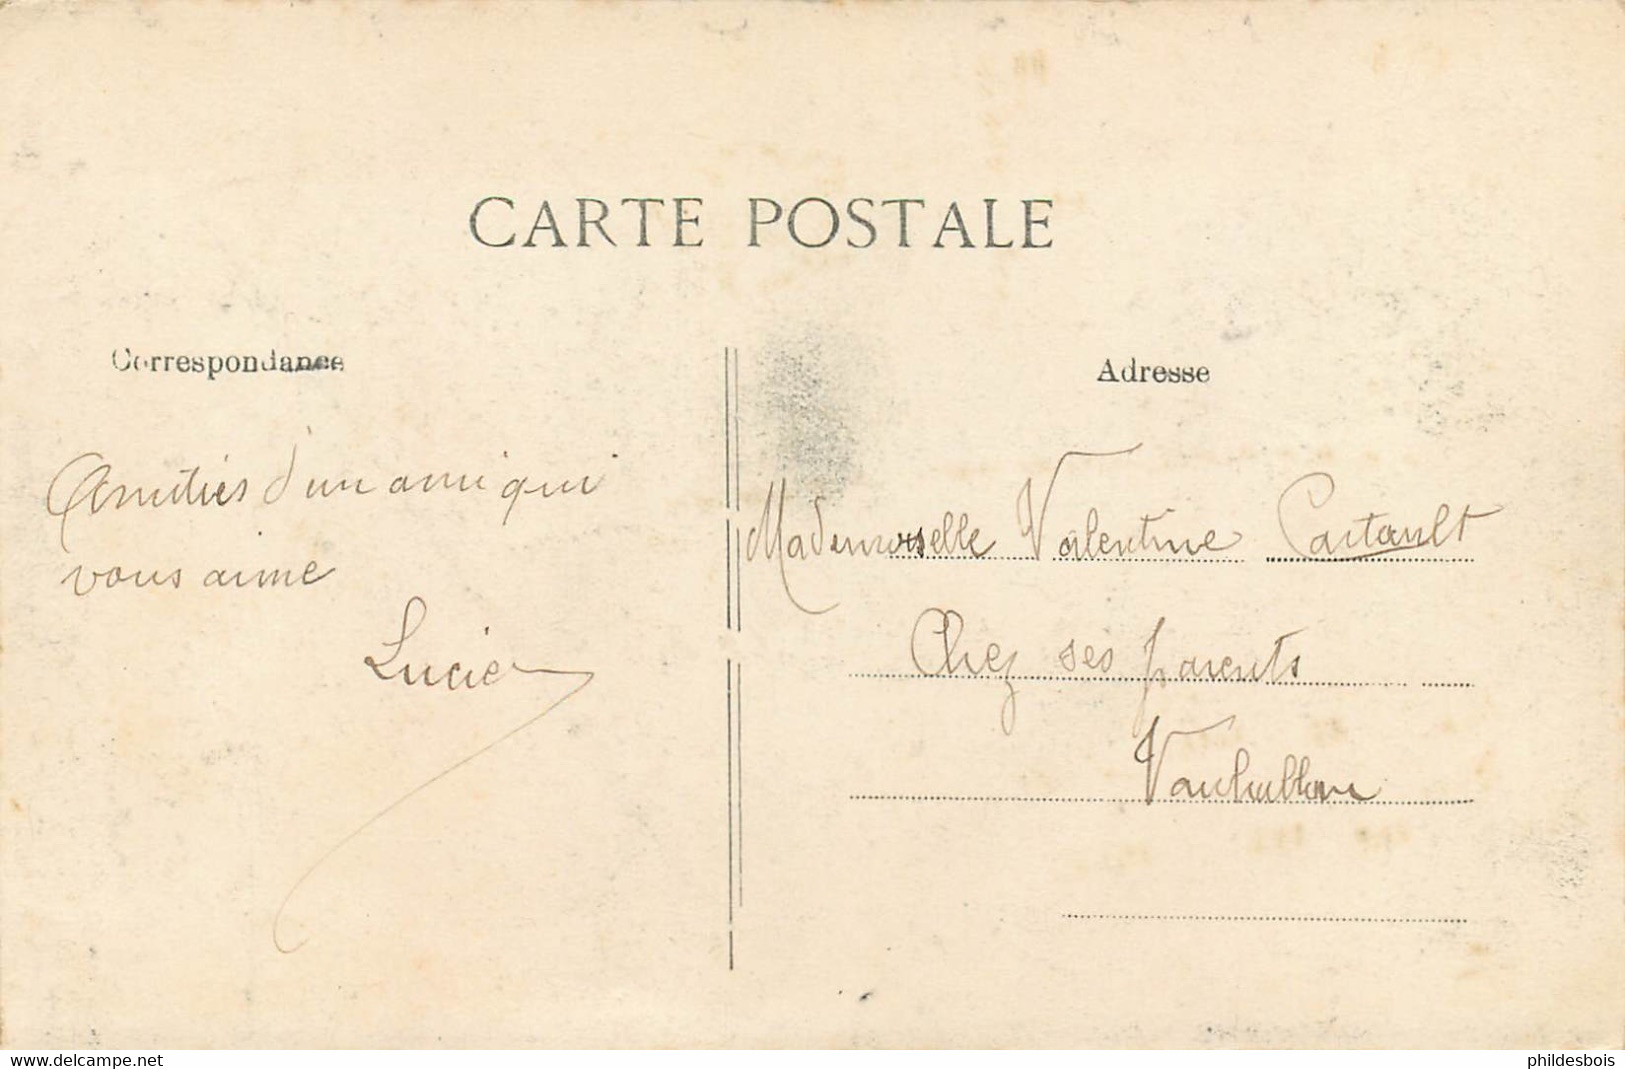 CARTE POSTALE
Correspondance
Adresse
Amitiés d'un ami qui
vous aime
Lucien
Mademoiselle Valentine
Chez ses parents
www.delcampe.net
phildesbois